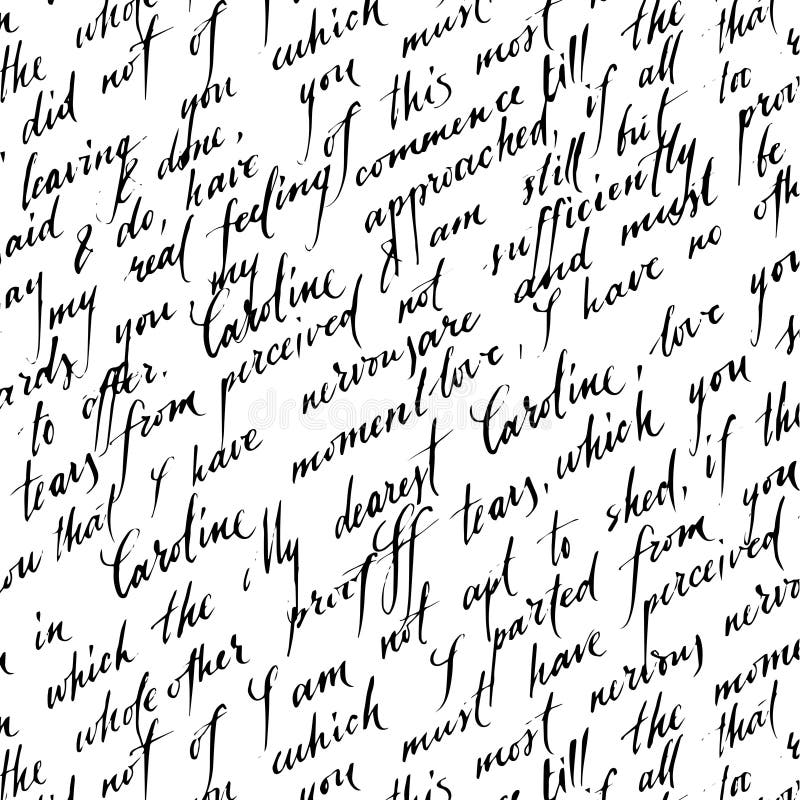 the whole
did not of you which must the
leaving you you must
said I done, of this most till the that
say & do, have commence if all too
my real feeling approached, but
ards you, my & am still sufficiently prov
to offer. Caroline not and must be
tears from perceived are I have no oth
you that I have nervous love,
moment Caroline, love you
Caroline My dearest which you s
in which the proof tears, shed, if the
the whole other not apt to from you
did not of I am I parted perceived
you which must have nervous
you this most till the mome
if all that too